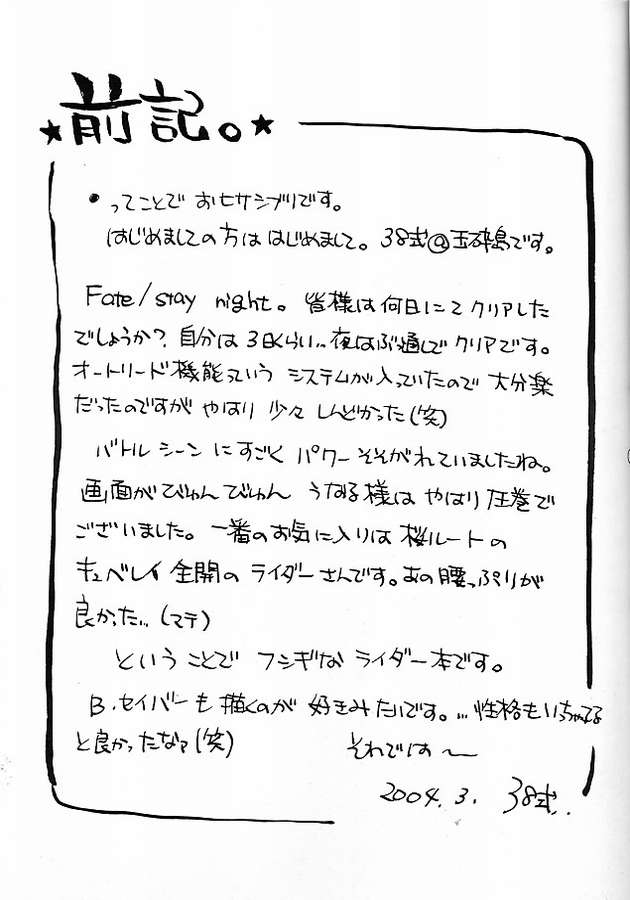 ★前記。★
・ってことで おセサシブリです。
はじめましての方は はじめまして。38式@玉砕島です。
Fate/stay night。皆様は何日にて クリアした
でしょうか？自分は3日くらい、、夜はぶっ通しで クリアです。
オートリード機能っていう システムが入っていたので 大分楽
だったのですが やはり 少々 しんどかった(笑)
バトル シーン にすごく パワー そそがれていましたね。
画面が びゅん びゅん うなる様は やはり 圧巻で
ございました。一番のお気に入りは 桜ルート の
キュベレイ 全開の ライダーさんです。あの腰っぷりが
良かった、、(マテ)
という ことで フシギな ライダー本です。
B.セイバー も 描くのが 好きみたいです。…性格もいっちゃってる
と良かったなァ(笑)
それでは〜
2004.3. 38式、、